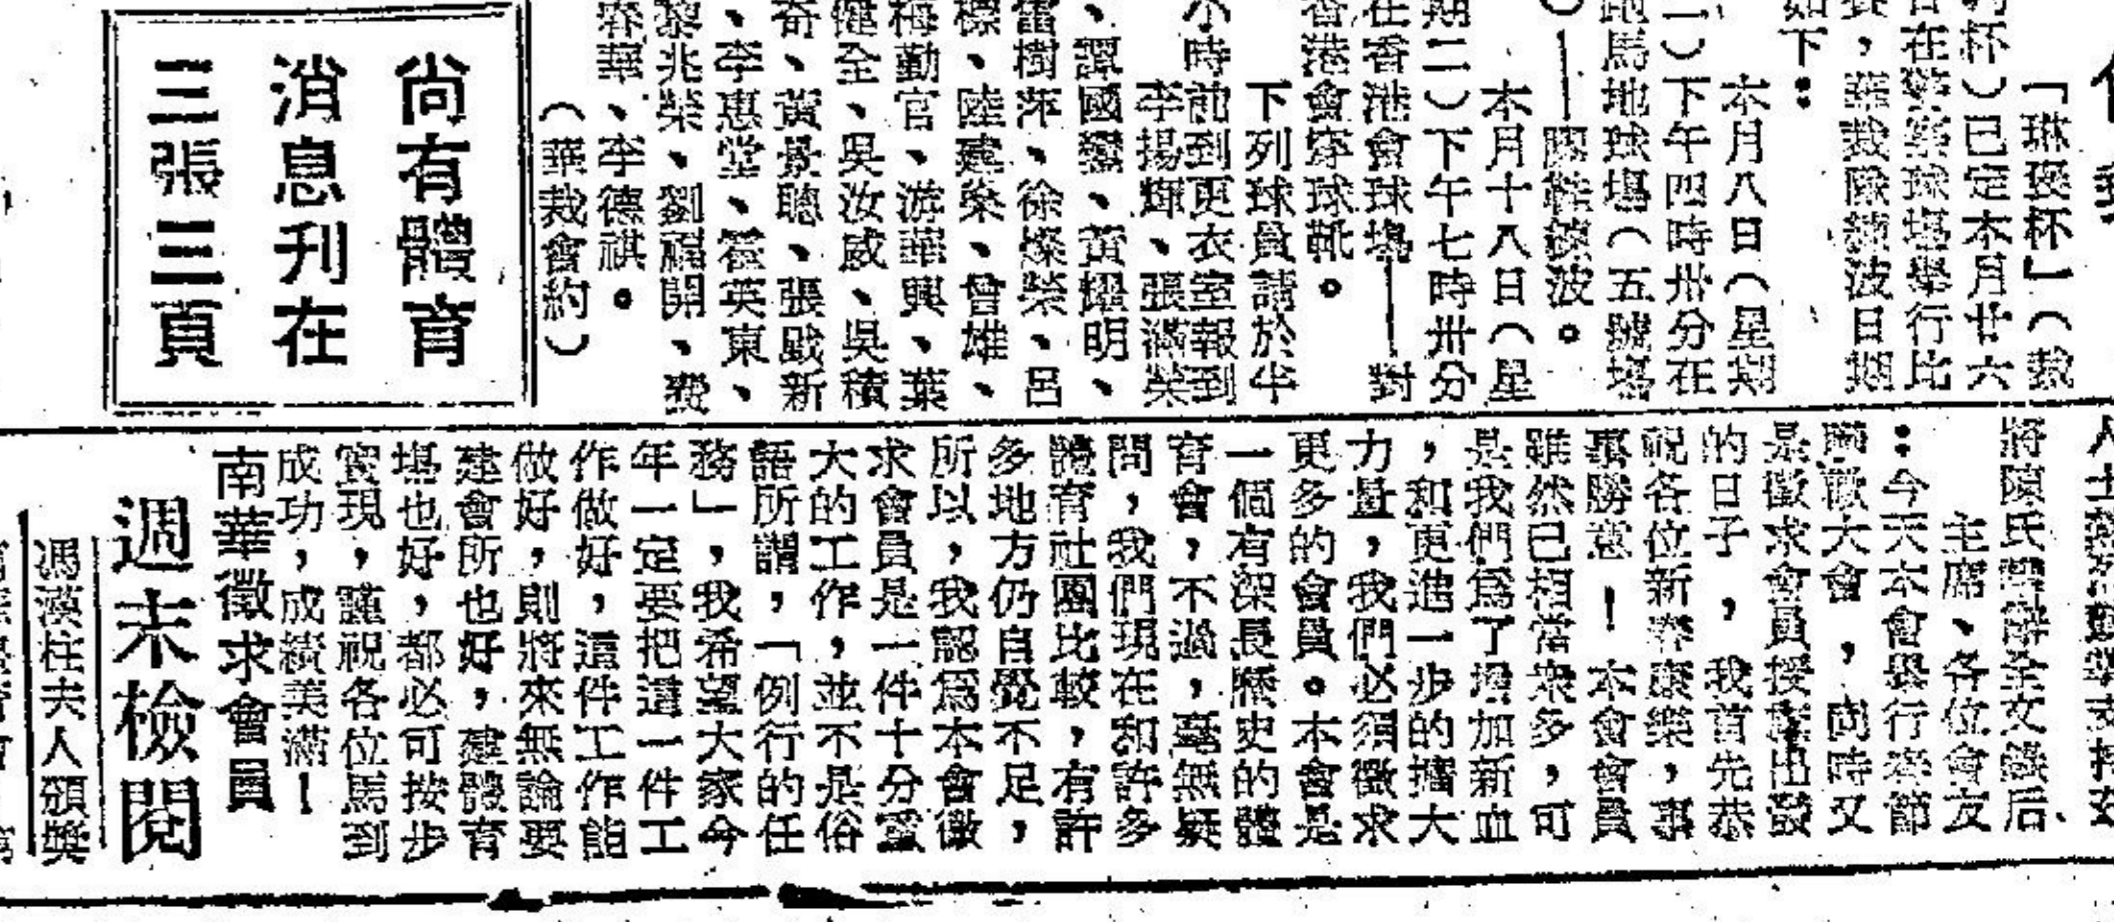 「琳瑯杯」（裁
杯）已定本月廿六
在警察球場舉行比
賽，華裁隊練波日期
如下：
本月八日（星期
一）下午四時卅分在
跑馬地球場（五號場
）｜關鞋練波。
本月十八日（星
期二）下午七時卅分
在香港會球塲｜對
香港會穿球靴。
下列球員請於半
小時前到更衣室報到
李揚輝、張滿榮
、譚國鑾、黃耀明、
雷樹萍、徐燦榮、呂
標、陸建燊、曾雄、
梅勤官、游華興、葉
健全、吳汝威、吳積
奇、黃景聰、張戥新
、李惠堂、霍英東、
黎兆榮、劉福開、
春華、李德祺。
（華裁會約）
尚有體育
消息刊在
三張三頁
將陳氏
詞全文錄后
主席、各位會友
：今天本會舉行春節
聯歡大會，同時又
是徵求會員授旗出發
的日子，我首先恭
祝各位新春康樂，事
事勝意！本會會員
雖然已相當衆多，可
是我們爲了增加新血
，和更進一步的擴大
力量，我們必須徵求
更多的會員。本會是
一個有深長歷史的體
育會，不過，毫無疑
問，我們現在和許多
體育社團比較，有許
多地方仍自覺不足，
所以，我認爲本會徵
求會員是一件十分重
大的工作，並不是俗
語所謂，「例行的任
務」，我希望大家今
年一定要把這一件工
作做好，這件工作能
做好，則將來無論要
建會所也好，建體育
塲也好，都必可按步
實現，謹祝各位馬到
成功，成績美滿！
南華徵求會員
週末檢閱
馮漢柱夫人頒獎